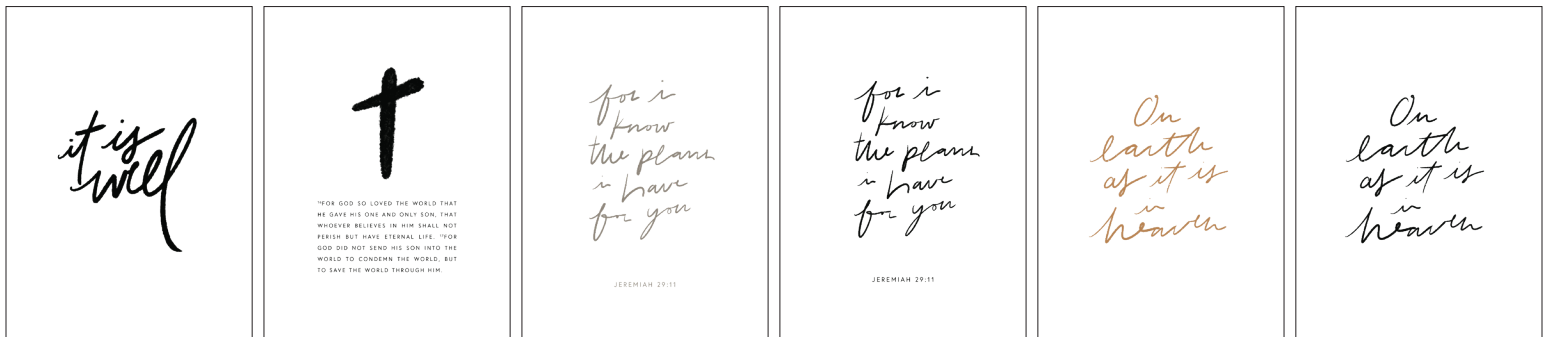 it is
well
¹⁶FOR GOD SO LOVED THE WORLD THAT
HE GAVE HIS ONE AND ONLY SON, THAT
WHOEVER BELIEVES IN HIM SHALL NOT
PERISH BUT HAVE ETERNAL LIFE. ¹⁷FOR
GOD DID NOT SEND HIS SON INTO THE
WORLD TO CONDEMN THE WORLD, BUT
TO SAVE THE WORLD THROUGH HIM.
for i
know
the plans
i have
for you
JEREMIAH 29:11
for i
know
the plans
i have
for you
JEREMIAH 29:11
On
earth
as it is
in
heaven
On
earth
as it is
in
heaven